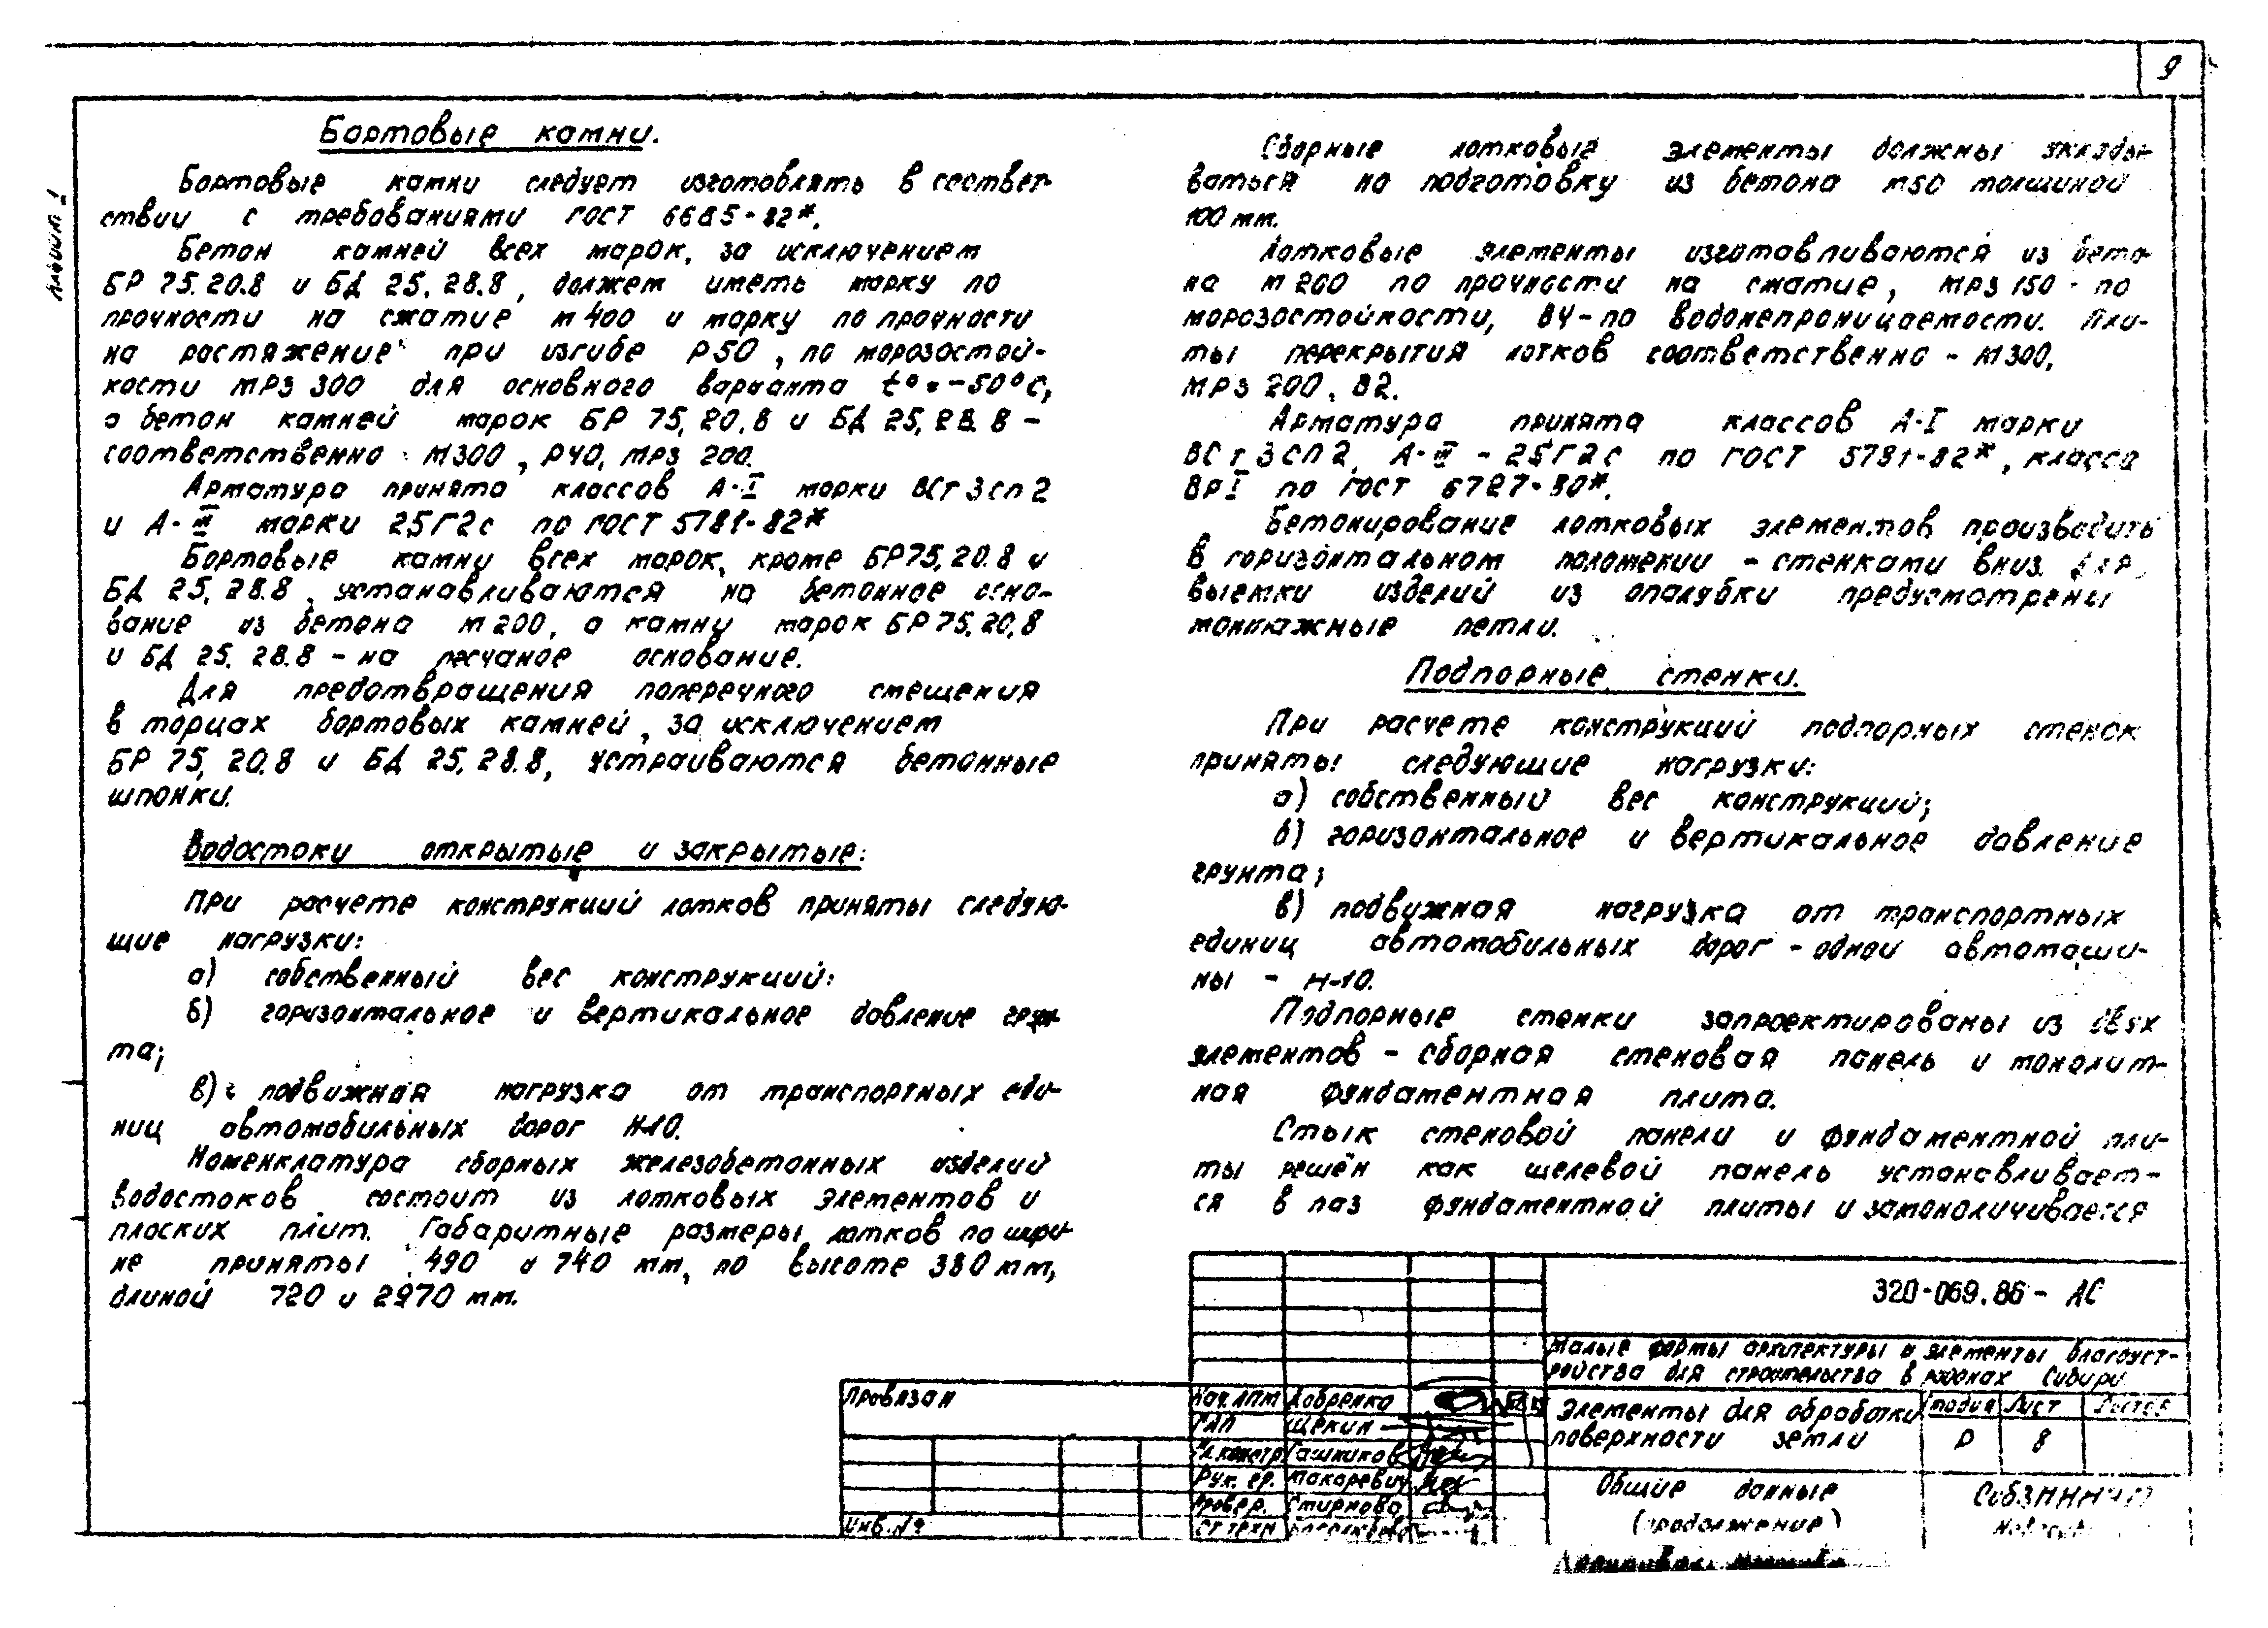 9
Альбом 1
Бортовые камни.
Бортовые камни следует изготовлять в соответ-
ствии с требованиями ГОСТ 6665-82*.
Бетон камней всех марок, за исключением
БР 75.20.8 и БД 25.28.8, должен иметь марку по
прочности на сжатие м 400 и марку по прочности
на растяжение при изгибе Р50, по морозостой-
кости МРЗ 300 для основного варианта t°=-50°С,
а бетон камней марок БР 75.20.8 и БД 25.28.8 -
соответственно М300, Р40, МРЗ 200.
Арматура принята классов А-I марки ВСт 3 сп 2
и А-III марки 25Г2с по ГОСТ 5781-82*
Бортовые камни всех марок, кроме БР 75.20.8 и
БД 25.28.8, устанавливаются на бетонное осно-
вание из бетона м 200, а камни марок БР 75.20.8
и БД 25.28.8 - на песчаное основание.
Для предотвращения поперечного смещения
в торцах бортовых камней, за исключением
БР 75.20.8 и БД 25.28.8, устраиваются бетонные
шпонки.
Водостоки открытые и закрытые:
При расчете конструкций лотков приняты следую-
щие нагрузки:
а) собственный вес конструкций:
б) горизонтальное и вертикальное давление грун-
та;
в) подвижная нагрузка от транспортных еди-
ниц автомобильных дорог Н-10.
Номенклатура сборных железобетонных изделий
водостоков состоит из лотковых элементов и
плоских плит. Габаритные размеры лотков по шири-
не приняты 490 и 740 мм, по высоте 380 мм,
длиной 720 и 2970 мм.
Сборные лотковые элементы должны укладываться
ваться на подготовку из бетона м50 толщиной
100 мм.
Лотковые элементы изготавливаются из бето-
на м 200 по прочности на сжатие, МРЗ 150 - по
морозостойкости, В4 - по водонепроницаемости. Пли-
ты перекрытия лотков соответственно - М 300,
МРЗ 200, В2.
Арматура принята классов А-I марки
ВСт 3 сп 2, А-III - 25Г2с по ГОСТ 5781-82*, класса
ВРI по ГОСТ 6727-80*.
Бетонирование лотковых элементов производить
в горизонтальном положении - стенками вниз. Для
выемки изделий из опалубки предусмотрены
монтажные петли.
Подпорные стенки.
При расчете конструкций подпорных стенок
приняты следующие нагрузки:
а) собственный вес конструкций;
б) горизонтальное и вертикальное давление
грунта;
в) подвижная нагрузка от транспортных
единиц автомобильных дорог - одной автомаши-
ны - Н-10.
Подпорные стенки запроектированы из двух
элементов - сборная стеновая панель и монолит-
ная фундаментная плита.
Стык стеновой панели и фундаментной пли-
ты решён как щелевой панель устанавливает-
ся в паз фундаментной плиты и замоноличивается
320-069.86 - АС
Малые формы архитектуры и элементы благоуст-
ройства для строительства в районах Сибири
Привязан
Инв.№
Нач. АПМ Добренко
ГАП Щекин
Гл.констр Гашников
Рук. гр. Макаревич
Провер. Смирнова
Ст.техн
Элементы для обработки
поверхности земли
Стадия Лист Листов
Р 8
Общие данные
(продолжение)